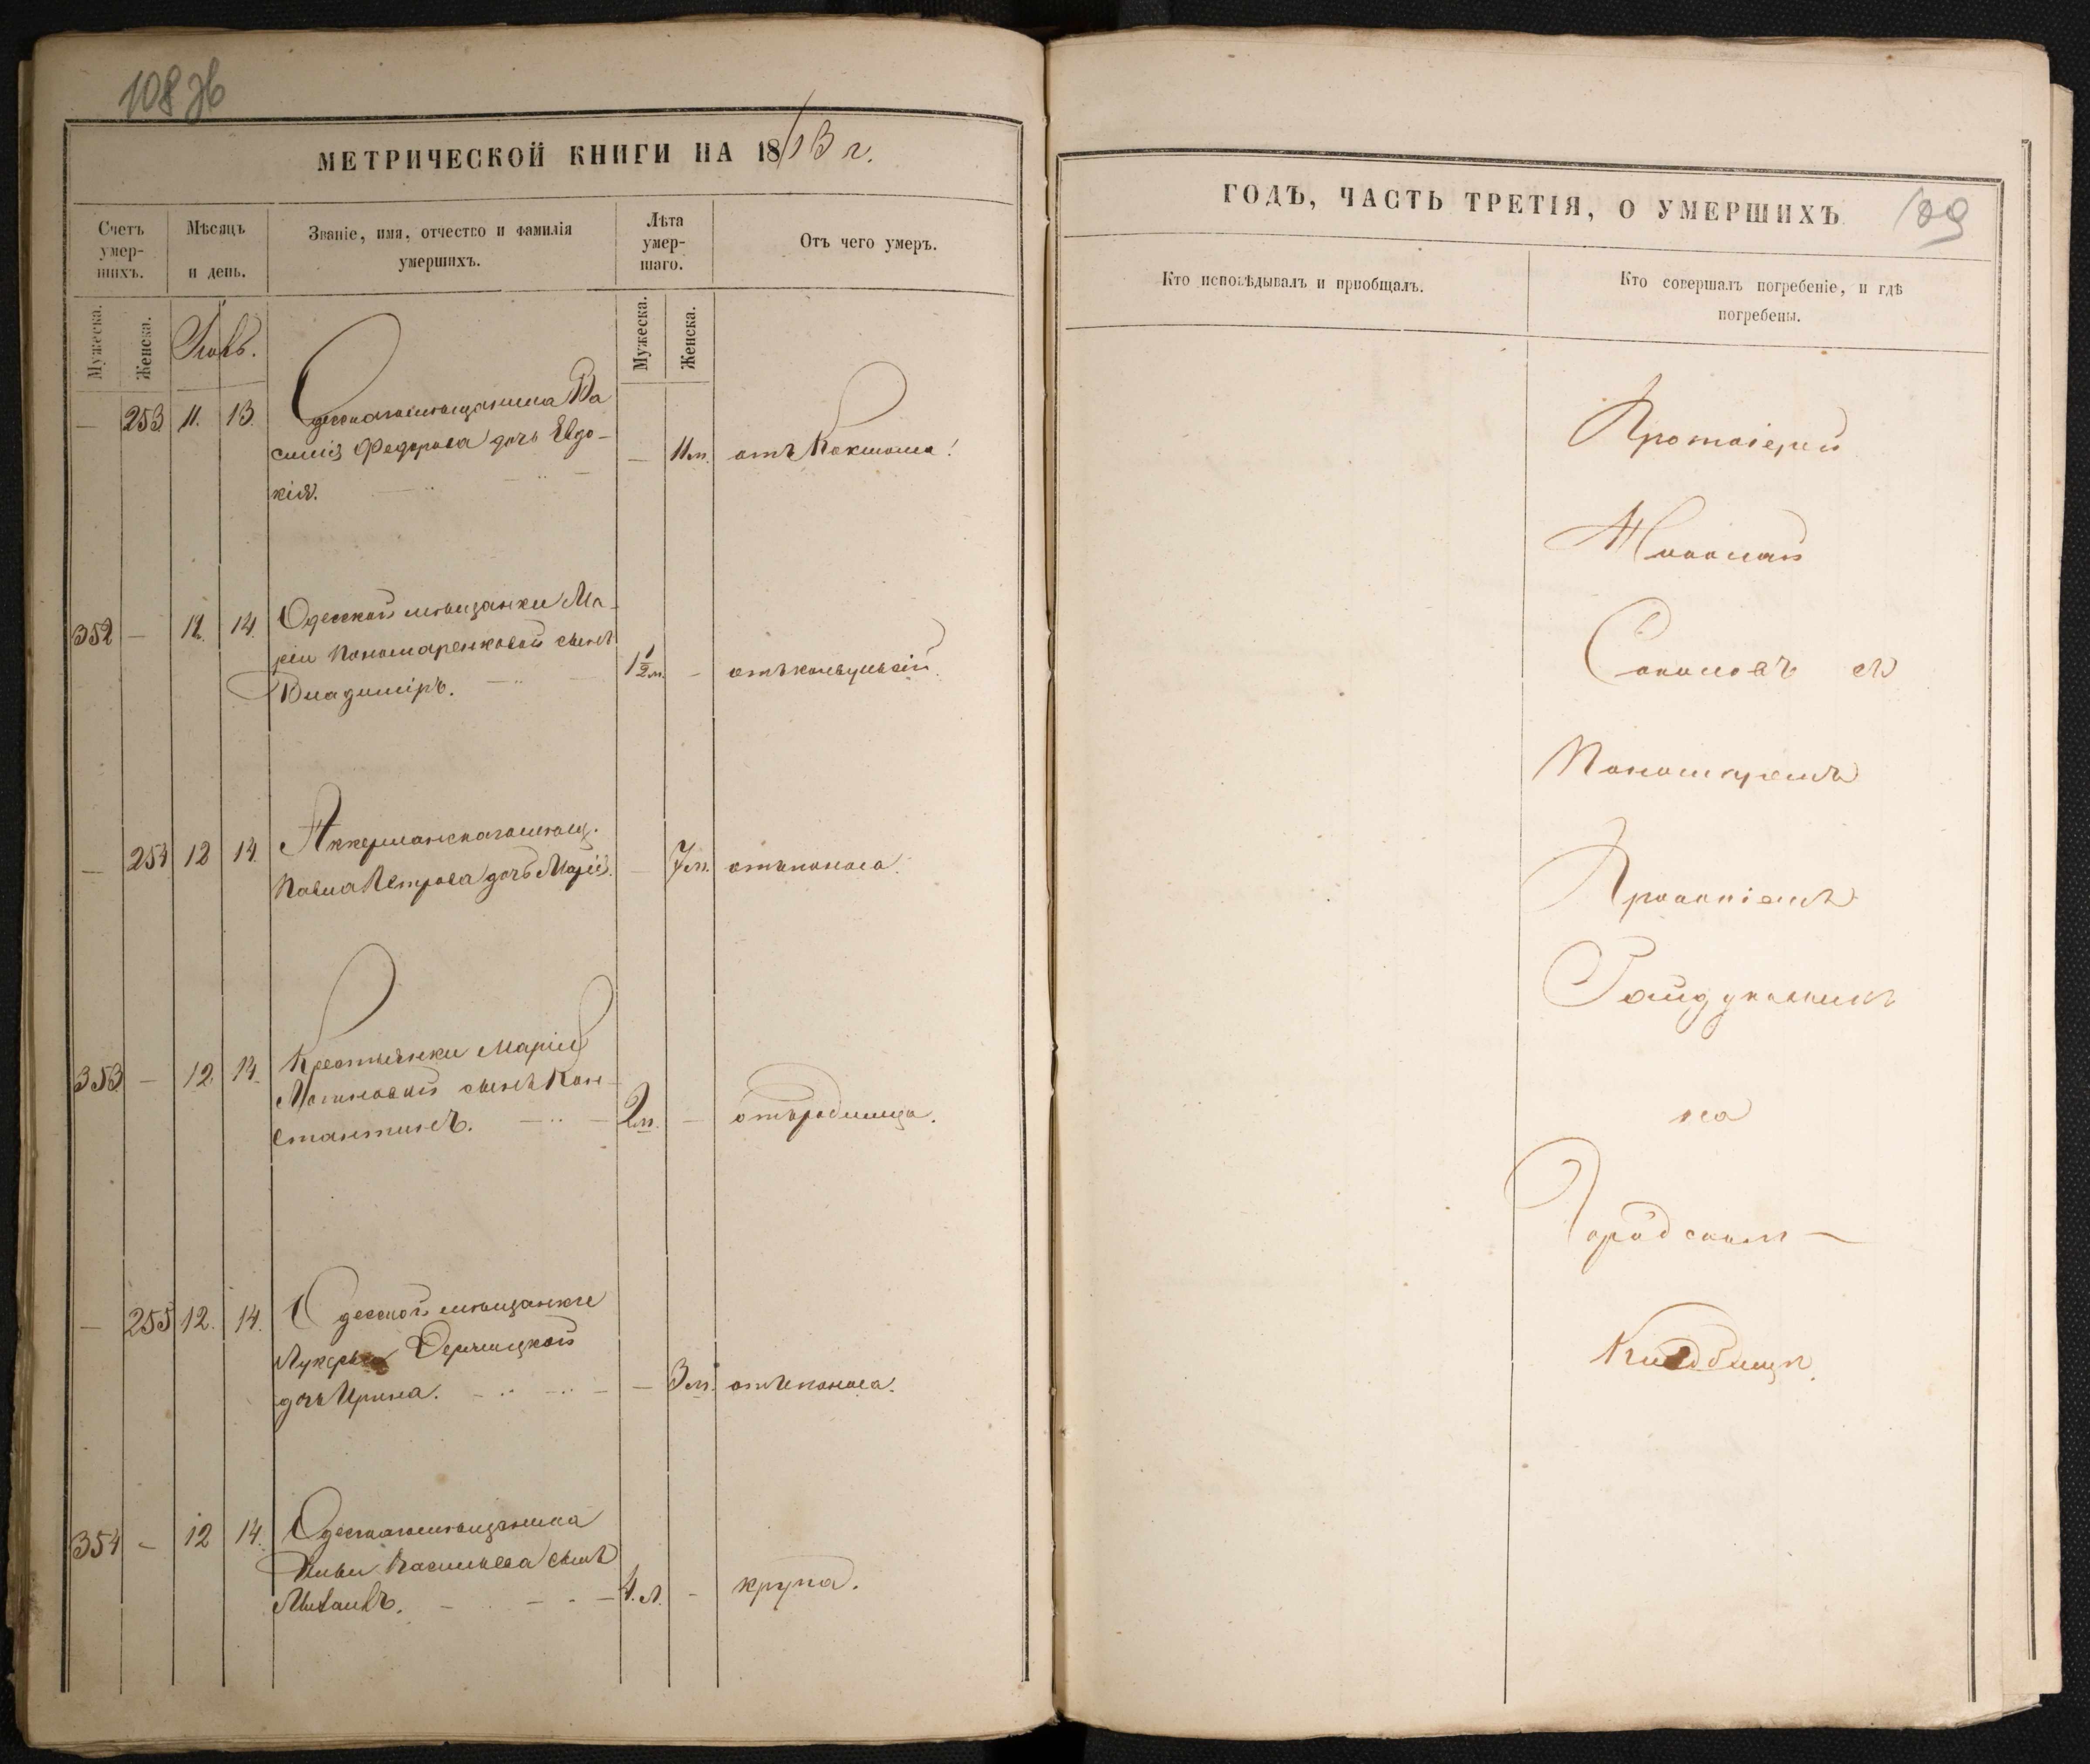 108 об
МЕТРИЧЕСКОЙ КНИГИ НА 18 г.
Счетъ умер-шихъ.
Мѣсяцъ и день.
Званіе, имя, отчество и фамилія умершихъ.
Лѣта умер-шаго.
Отъ чего умеръ.
Мужеска.
Женска.
Мужеска.
Женска.
— 253 11. 13. Одесскаго мѣщанина Ва
силія Федорова дочь Евдо-
кія. — 11 м. отъ Коклюша.
352 — 12. 14. Одесской мѣщанки Ма-
ріи Пономаренковой сынъ
Владиміръ. 1 1/2 м. — отъ конвульсій.
— 254 12 14. Аккерманскаго мѣщ.
Павла Петрова дочь Марія. — 7 м. отъ поноса.
353 — 12 14. Крестьянки Маріи
сынъ Кон-
стантинъ. 2 м. — отъ родимца.
— 255 12. 14. Одесской мѣщанки
Лукерьи
дочь Ирина. — 3 м. отъ поноса.
354 — 12 14. Одесскаго мѣщанина
Васильева сынъ
Михаилъ. 4. л. — крупа.
ГОДЪ, ЧАСТЬ ТРЕТІЯ, О УМЕРШИХЪ
109
Кто исповѣдывалъ и пріобщалъ.
Кто совершалъ погребеніе, и гдѣ погребены.
Протоіерей
Николай
Соколовъ съ
Прокопіемъ
на
Городскомъ
Кладбищѣ.